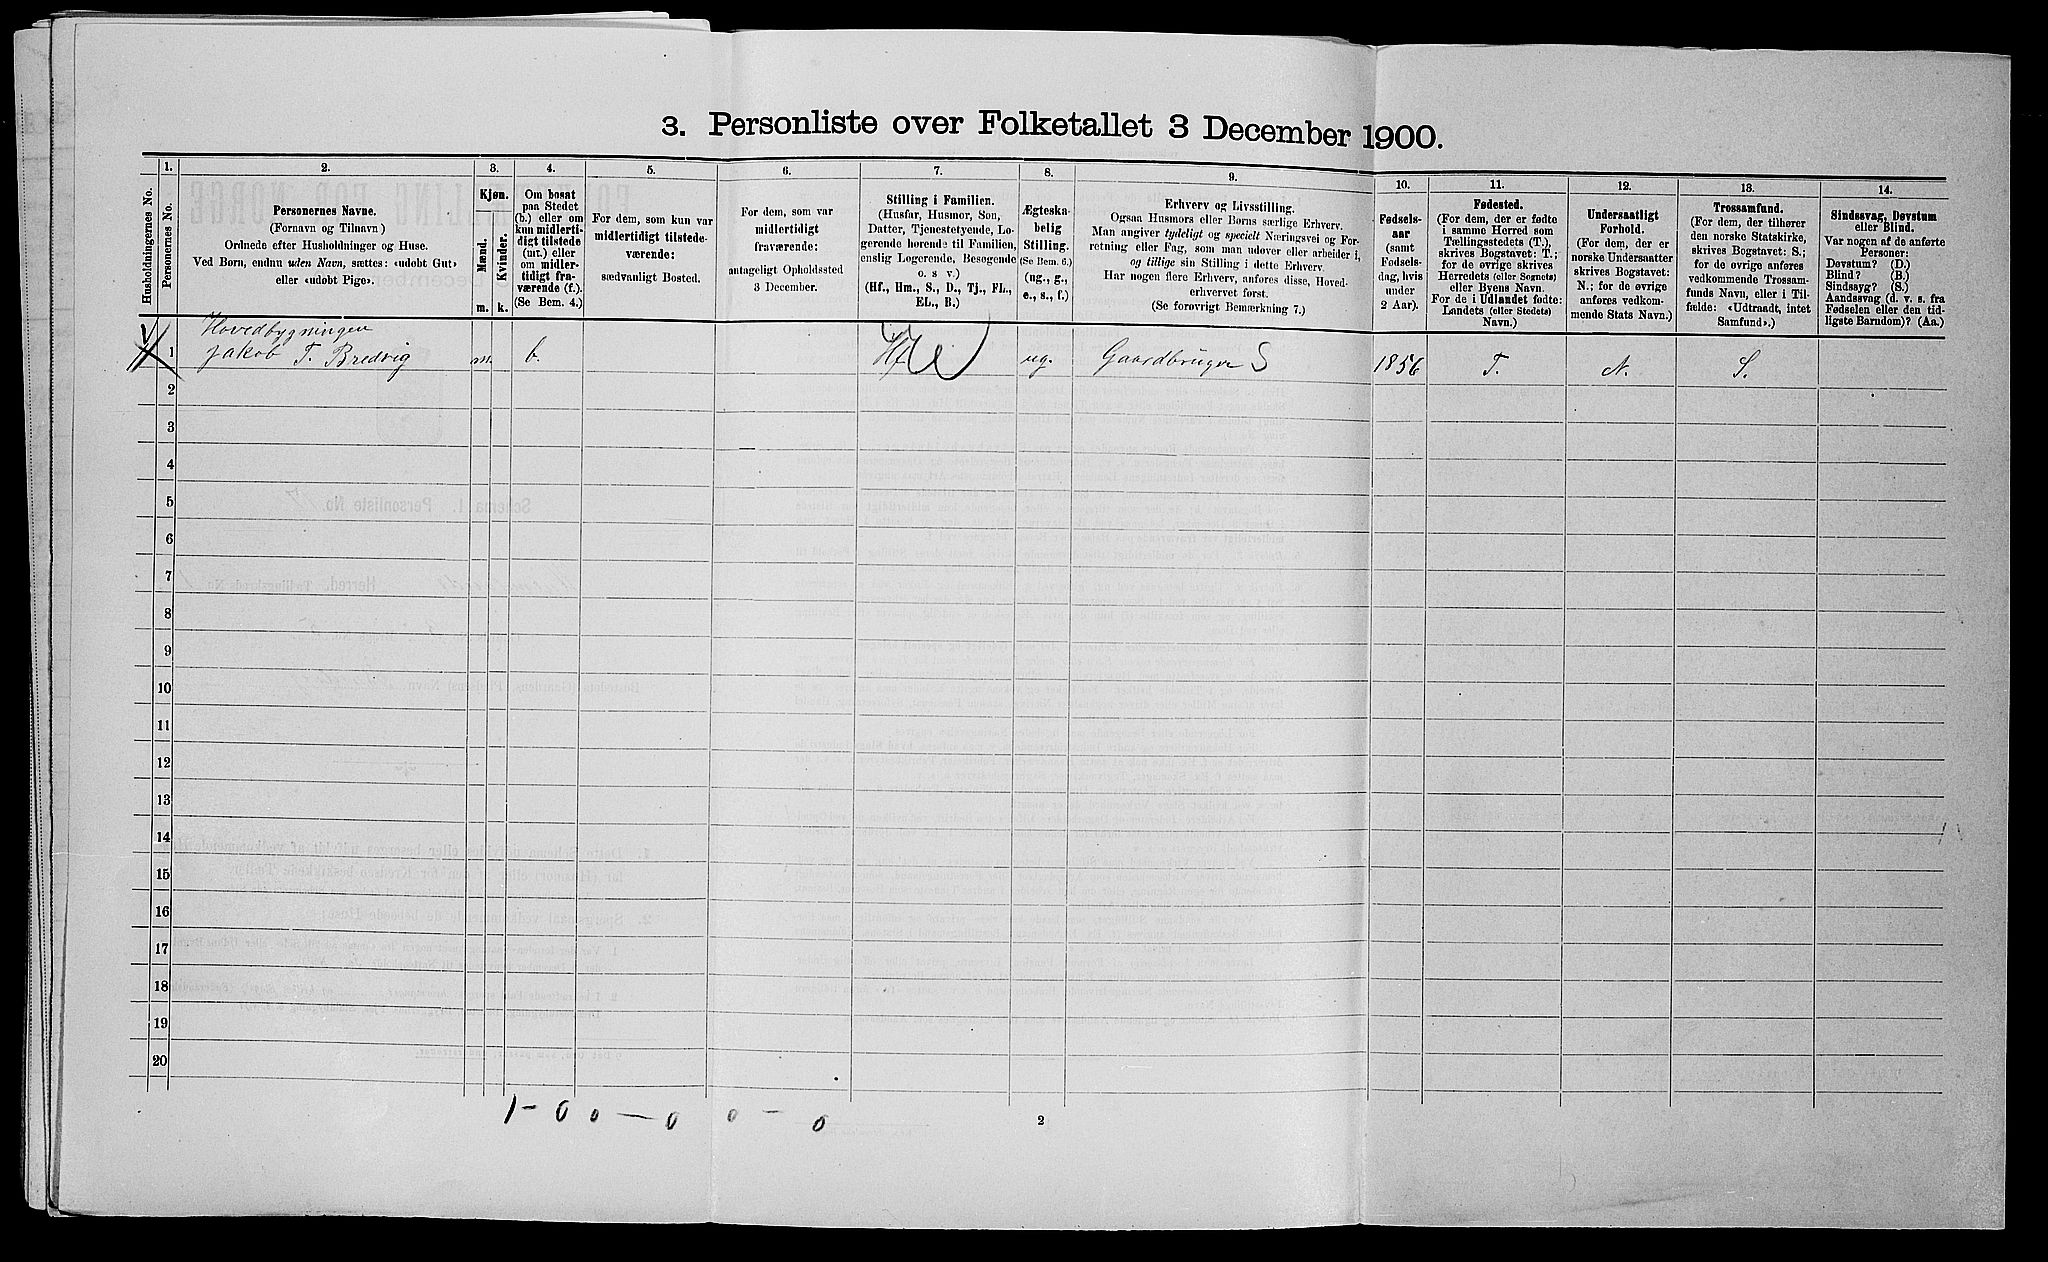 3. Personliste over Folketallet 3 December 1900.
Husholdningernes No.
1.
Personernes No.
2.
Personernes Navne.
(Fornavn og Tilnavn)
Ordnede efter Husholdninger og Huse.
Ved Børn, endnu uden Navn, sættes: «udøbt Gut»
eller «udøbt Pige».
3.
Kjøn.
Mænd.
Kvinder.
m. k.
4.
Om bosat
paa Stedet
(b.) eller om
kun midlerti-
digt tilstede
(mt.) eller
om midler-
tidigt fra-
værende (f.).
(Se Bem. 4.)
5.
For dem, som kun var
midlertidigt tilstede-
værende:
sædvanligt Bosted.
6.
For dem, som var
midlertidigt
fraværende:
antageligt Opholdssted
3 December.
7.
Stilling i Familien.
(Husfar, Husmor, Søn,
Datter, Tjenestetyende, Lo-
gerende hørende til Familien,
enslig Logerende, Besøgende
o. s v.)
(Hf., Hm., S., D., Tj., FL.,
EL., B.)
8.
Ægteska-
belig
Stilling.
(Se Bem. 6.)
(ug., g.,
e., s., f.)
9.
Erhverv og Livsstilling.
Ogsaa Husmors eller Børns særlige Erhverv.
Man angiver tydeligt og specielt Næringsvei og For-
retning eller Fag, som man udøver eller arbeider i,
og tillige sin Stilling i dette Erhverv.
Har nogen flere Erhverv, anføres disse, Hoved-
erhvervet først.
(Se forøvrigt Bemærkning 7.)
10.
Fødsels-
aar
(samt
Fødsels-
dag, hvis
under
2 Aar).
11.
Fødested.
(For dem, der er fødte
i samme Herred som
Tællingsstedets (T.),
skrives Bogstavet: T.;
for de øvrige skrives
Herredets (eller Sognets)
eller Byens Navn.
For de i Udlandet fødte:
Landets (eller Stedets)
Navn.)
12.
Undersaatligt
Forhold.
(For dem, der er
norske Undersaatter
skrives Bogstavet:
N.; for de øvrige
anføres vedkom-
mende Stats Navn.)
13.
Trossamfund.
(For dem, der tilhører
den norske Statskirke,
skrives Bogstavet: S.;
for de øvrige anføres
vedkommende Trossam-
funds Navn, eller i Til-
fælde: «Udtraadt, intet
Samfund».)
14.
Sindssvag, Døvstum
eller Blind.
Var nogen af de anførte
Personer:
Døvstum? (D.)
Blind? (B.)
Sindssyg? (S.)
Aandssvag (d. v. s. fra
Fødselen eller den tid-
ligste Barndom)? (Aa.)
Hovedbygningen
1 Jakob T. Bredvig m. b. Hf ug. Gaardbruger S 1856 T. N. S.
2
3
4
5
6
7
8
9
10
11
12
13
14
15
16
17
18
19
20
1 - 0 0 - 0 0 - 0
2